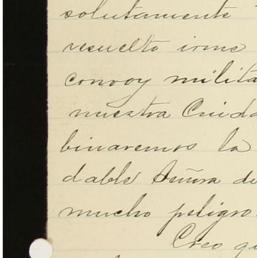 solutamente
resuelto irme
convoy milita
nuestra Cuida
binaremos la
dable Señora de
mucho peligro
Creo qu